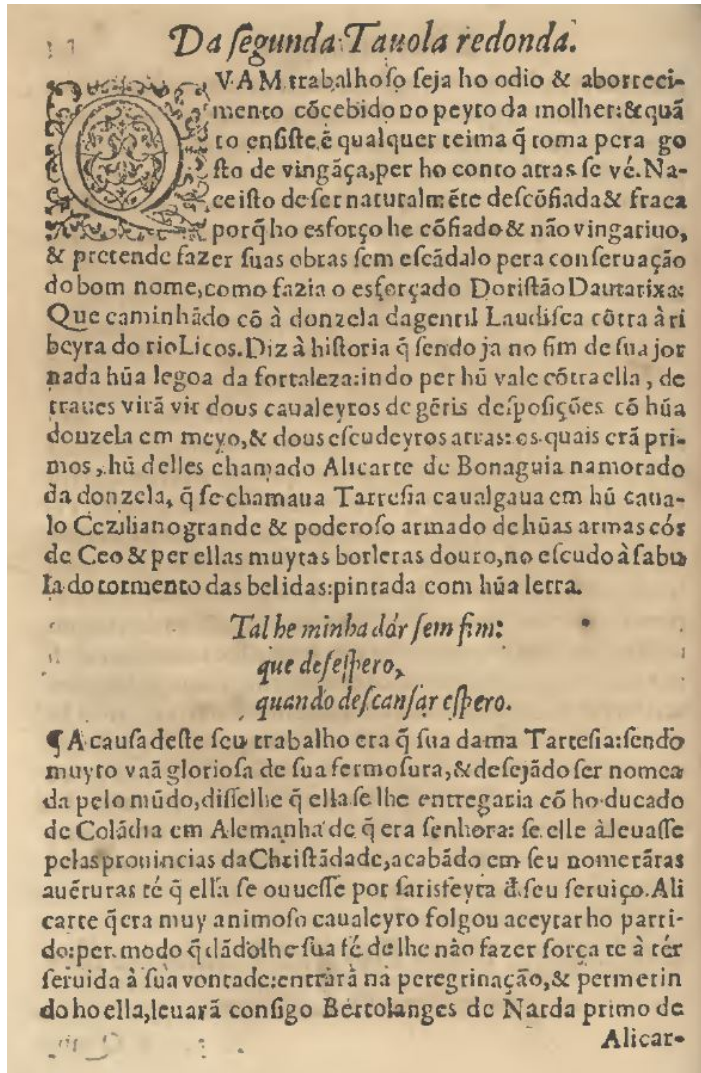 Da ſegunda Tauola redonda.
QVAM trabalhoſo ſeja ho odio & aborreci-
mento cõcebido no peyto da molher: & quã
to enſiſte ẽ qualquer teima q̃ toma pera go
ſto de vingãça, per ho conto atras ſe vé. Na-
ce iſto de ſer naturalmẽte deſcõfiada & fraca
porq̃ ho esforço he cõfiado & não vingatiuo,
& pretende fazer ſuas obras ſem eſcãdalo pera conſeruação
do bom nome, como fazia o esforçado Doriſtão Dautarixa:
Que caminhãdo cõ à donzela da gentil Laudiſea cõtra à ri
beyra do rio Licos. Diz à hiſtoria q̃ ſendo ja no fim de ſua jor
nada hũa legoa da fortaleza: indo per hũ vale cõtra ella, de
traues virã vir dous caualeyros de gẽtis deſpoſições cõ hũa
donzela em meyo, & dous eſcudeyros atras: os quais erã pri-
mos, hũ delles chamado Alicarte de Bonaguia namorado
da donzela, q̃ ſe chamaua Tarteſia caualgaua em hũ caua-
lo Ceziliano grande & poderoſo armado de hũas armas cór
de Ceo & per ellas muytas borletas douro, no eſcudo à fabu
la do tormento das belidas: pintada com hũa letra.
Tal he minha dór ſem fim:
que deſeſpero,
quando deſcanſar eſpero.
¶ A cauſa deſte ſeu trabalho era q̃ ſua dama Tarteſia: ſendo
muyto vaã glorioſa de ſua fermoſura, & deſejãdo ſer nomea
da pelo mũdo, diſſelhe q̃ ella ſe lhe entregaria cõ ho ducado
de Colãdia em Alemanha de q̃ era ſenhora: ſe elle à leuaſſe
pelas prouincias da Chriſtãdade, acabãdo em ſeu nome tãtas
auẽturas té q̃ ella ſe ouueſſe por ſatisfeyta đ ſeu ſeruiço. Ali
carte q̃ era muy animoſo caualeyro folgou aceytar ho parti-
do: per modo q̃ dãdolhe ſua fé de lhe não fazer força te à tér
ſeruida à ſua vontade: entrárã na peregrinação, & permetin
do ho ella, leuarã conſigo Bertolanges de Narda primo de
Alicar-